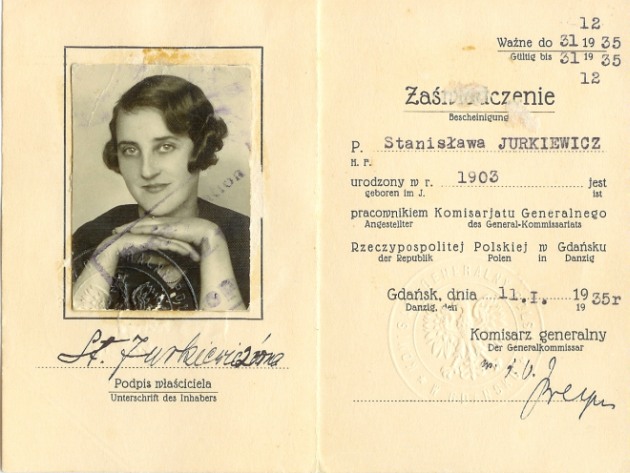 St. Jurkiewiczówna
Podpis właściciela
Unterschrift des Inhabers
12
Ważne do 31 19 35
Gültig bis 31 19 35
12
Zaświadczenie
Bescheinigung
P. Stanisława JURKIEWICZ
H. F.
urodzony w r. 1903 jest
geboren im J. ist
pracownikiem Komisarjatu Generalnego
Angestellter des General-Kommissariats
Rzeczypospolitej Polskiej w Gdańsku
der Republik Polen in Danzig
Gdańsk, dnia 11.I. 1935r
Danzig, den 19
Komisarz generalny
Der Generalkommissar